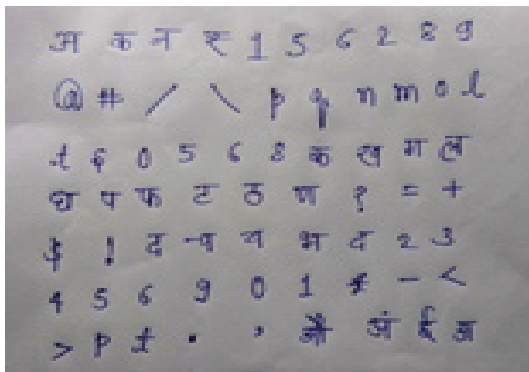 अ क न र 1 5 6 2 8 9
@ # / \ p q n m o l
t 6 0 5 6 8 क ख ग ल
घ प फ ट ठ ण ? = +
! द च य भ द 2 3
4 5 6 9 0 1 * - <
> p t . , औ अं ई अ